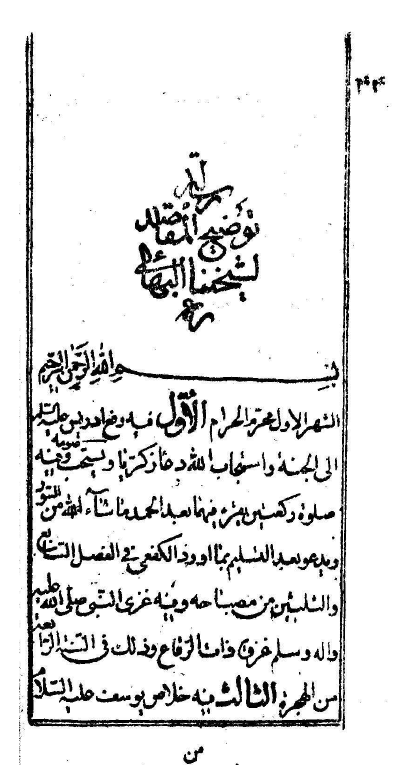 رسالة
توضيح المقاصد
لشيخنا البهائي
ره
بسم الله الرحمن الرحيم
الشهر الاول محرم الحرام الأول فيه رفع ادريس عليه السلم
الى الجنة واستجاب الله دعاء زكريا ويستحب صومه وفيه
صلوة ركعتين يقرء فيهما بعد الحمد ما شاء الله من السور
ويدعو بعد التسليم بما اورد الكفعمى فى الفصل التاسع
والثلثين من مصباحه وفيه غزى النبى صلى الله عليه
واله وسلم غزوة ذات الرقاع وذلك فى السنة الرابعة
من الهجرة الثالث فيه خلاص يوسف عليه السلام
من